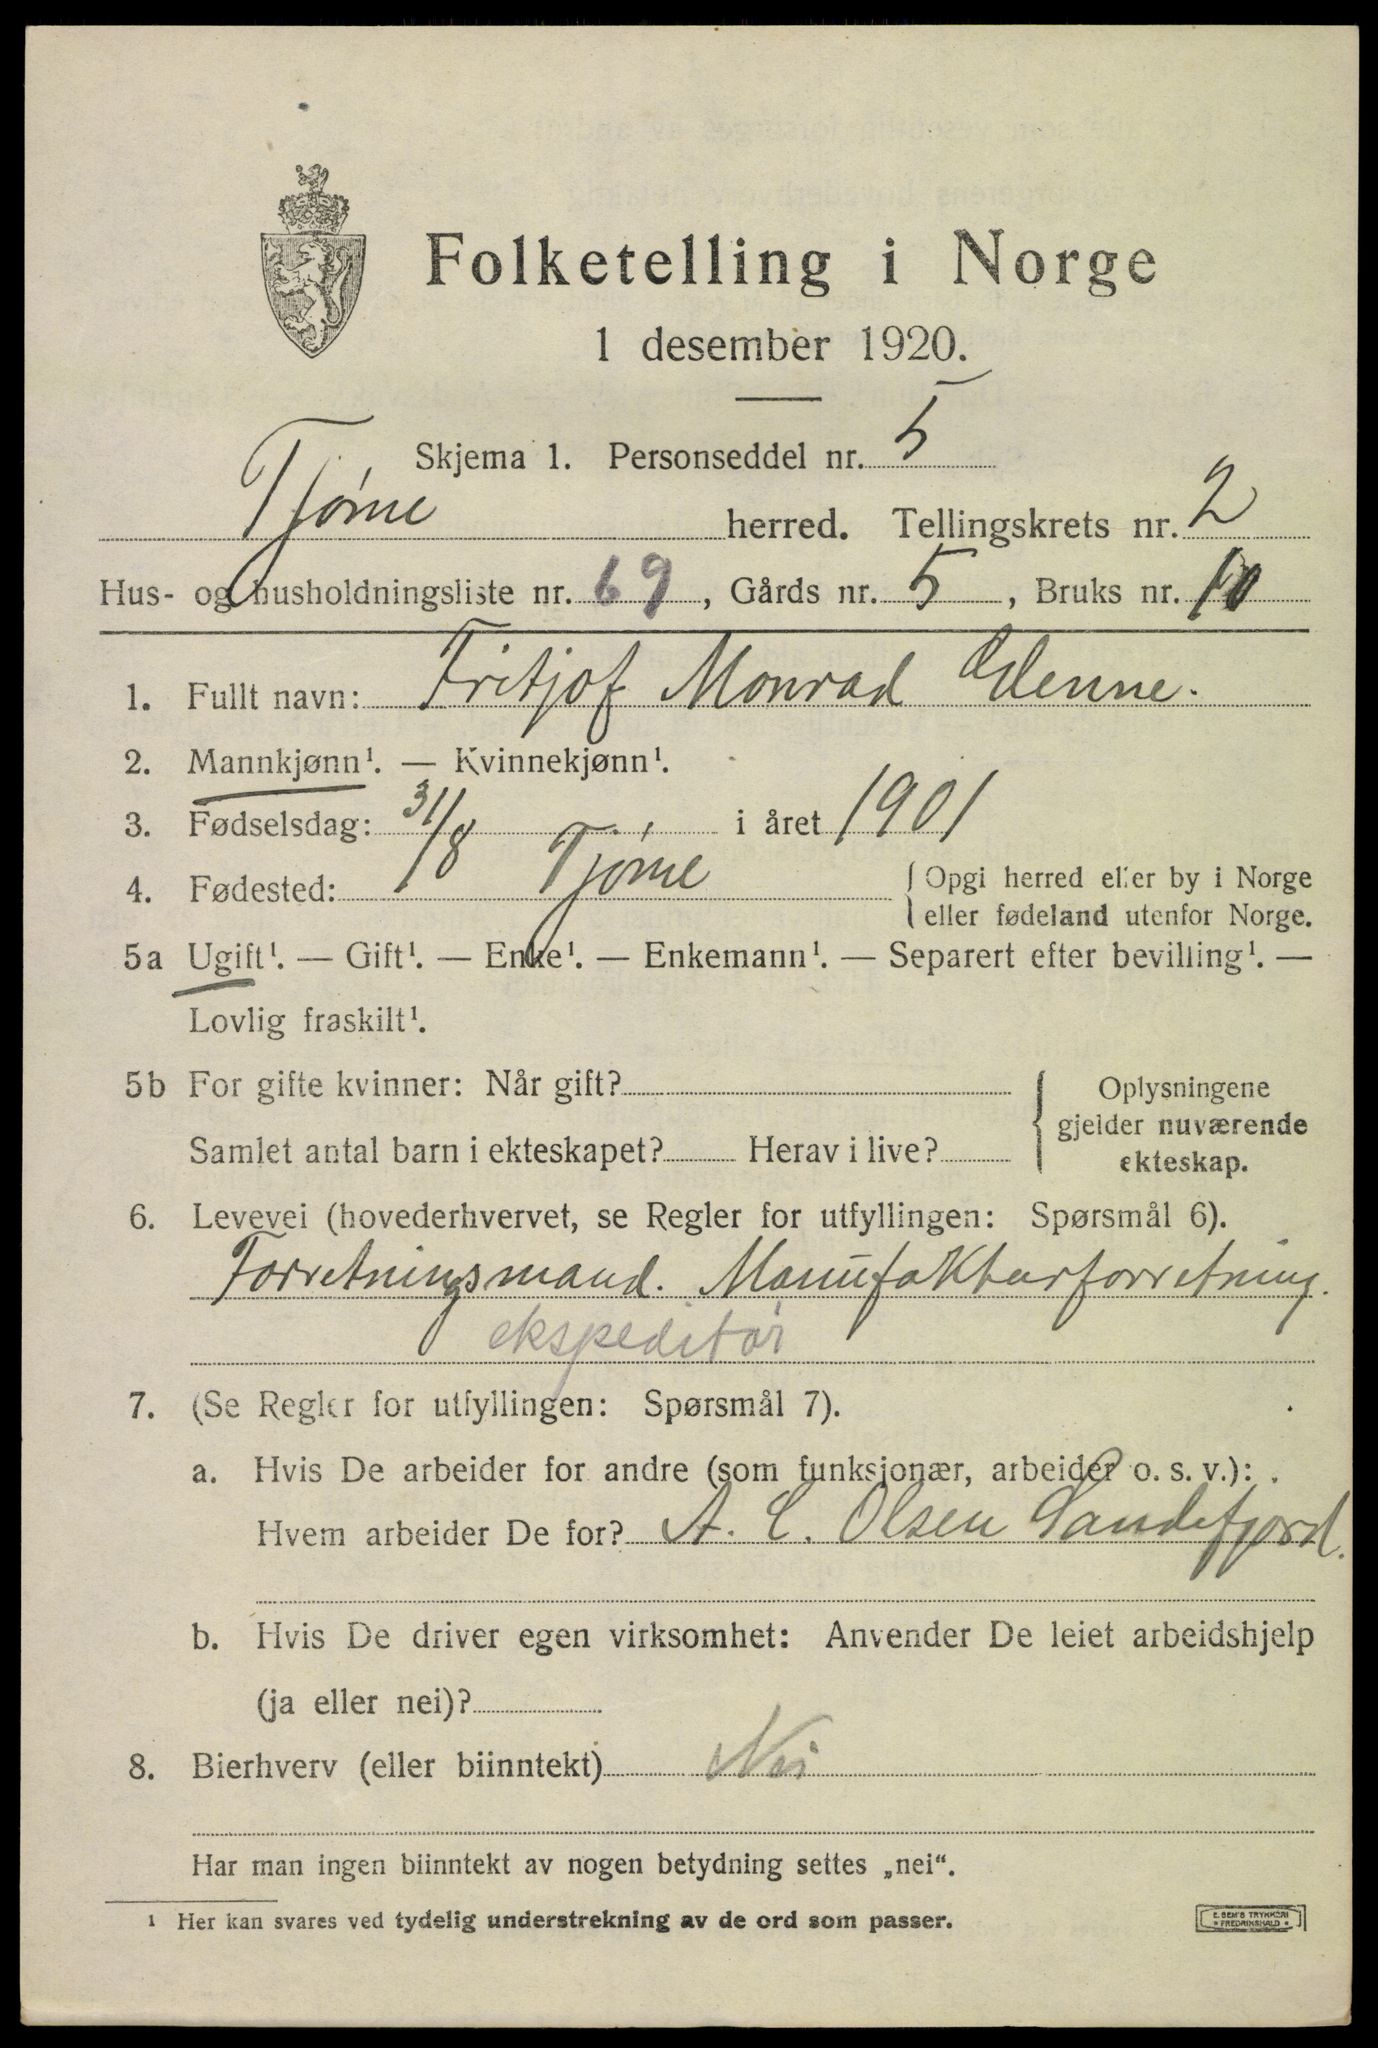 Folketelling i Norge
1 desember 1920.
Skjema 1. Personseddel nr. 5
Tjøme herred. Tellingskrets nr. 2
Hus- og husholdningsliste nr. 69, Gårds nr. 5, Bruks nr. 10
1. Fullt navn: Fritjof Monrad Ødenne.
2. Mannkjønn¹. — Kvinnekjønn¹.
3. Fødselsdag: 31/8 i året 1901
4. Fødested: Tjøme { Opgi herred eller by i Norge
eller fødeland utenfor Norge.
5a Ugift¹. — Gift¹. — Enke¹. — Enkemann¹. — Separert efter bevilling¹. —
Lovlig fraskilt¹.
5b For gifte kvinner: Når gift? { Oplysningene
gjelder nuværende
Samlet antal barn i ekteskapet? Herav i live? ekteskap.
6. Levevei (hovederhvervet, se Regler for utfyllingen: Spørsmål 6).
Forretningsmand. Manufakturforretning.
ekspeditør
7. (Se Regler for utfyllingen: Spørsmål 7).
a. Hvis De arbeider for andre (som funksjonær, arbeider o. s. v.):
Hvem arbeider De for? A. C. Olsen Sandefjord.
b. Hvis De driver egen virksomhet: Anvender De leiet arbeidshjelp
(ja eller nei)?
8. Bierhverv (eller biinntekt) Nei
Har man ingen biinntekt av nogen betydning settes „nei“.
¹ Her kan svares ved tydelig understrekning av de ord som passer.
E. SEM'S TRYKKERI
* FREDRIKSHALD *